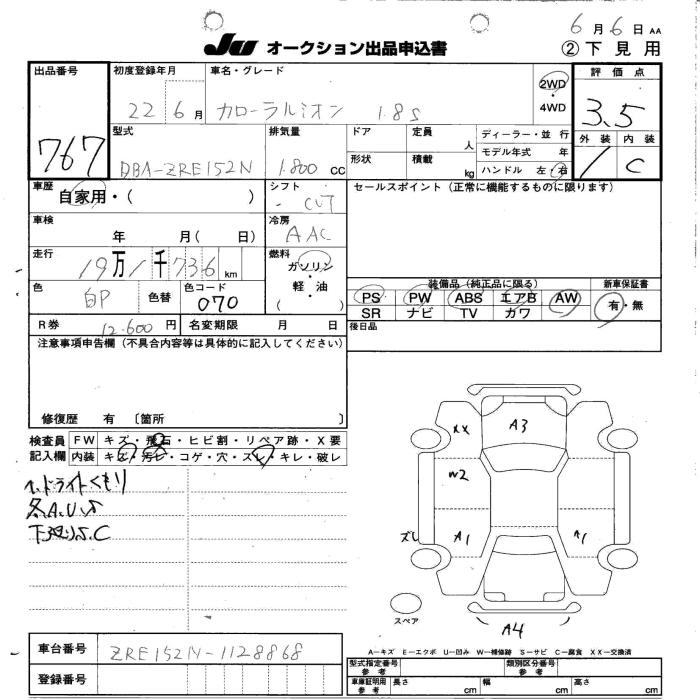 6月6日 AA
JU オークション出品申込書
② 下見用
出品番号 初度登録年月 車名・グレード 評価点
767 22 6月 カローラルミオン 1.8S 2WD・4WD 3.5
型式 排気量 ドア 定員 人 ディーラー・並行 外装 内装
DBA-ZRE152N 1.800cc 形状 積載 kg モデル年式 年 1 C
ハンドル 左・右
車歴 自家用・( ) シフト - CVT セールスポイント (正常に機能するものに限ります)
車検 年 月( 日) 冷房 AAC
走行 19万1千736km 燃料 ガソリン・軽・油 ( )
色 白P 色替 色コード 070
装備品 (純正品に限る) 新車保証書
PS PW ABS エアB AW 有・無
SR ナビ TV カワ
R券 12.600円 名変期限 月 日 後日品
注意事項申告欄 (不具合内容等は具体的に記入してください)
修復歴 有 〔箇所 〕
検査員記入欄 FW キズ・飛石・ヒビ割・リペア跡・X要
内装 キズ・汚レ・コゲ・穴・スレ・キレ・破レ
ヘッドライトくもり
各A.U.S
下廻りS.C
XX A3
W2
ズレ A1 A1
スペア
A4
A―キズ E―エクボ U―凹み W―補修跡 S―サビ C―腐食 XX―交換済
車台番号 ZRE152N-1128868
登録番号
型式指定番号 参考 類別区分番号 参考
車庫証明用 参考 長さ cm 幅 cm 高さ cm